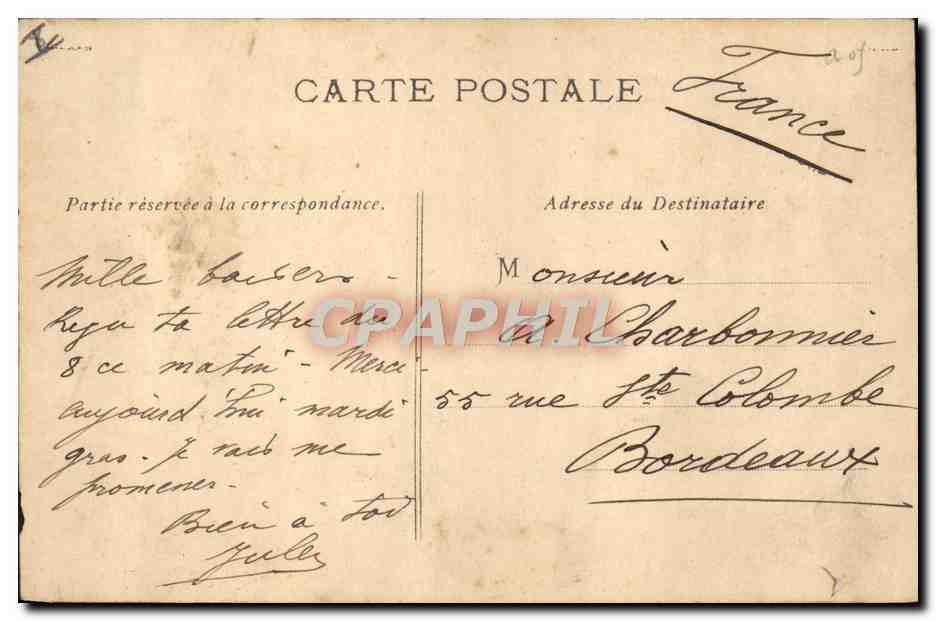 CARTE POSTALE
France
Partie réservée à la correspondance.
Mille baisers -
Reçu ta lettre du
8 ce matin - Merci -
aujourd'hui mardi
gras - je vais me
promener -
Bien à toi
Jules
Adresse du Destinataire
Monsieur
A Charbonnier
55 rue Ste Colombe
Bordeaux
CPAPHIL